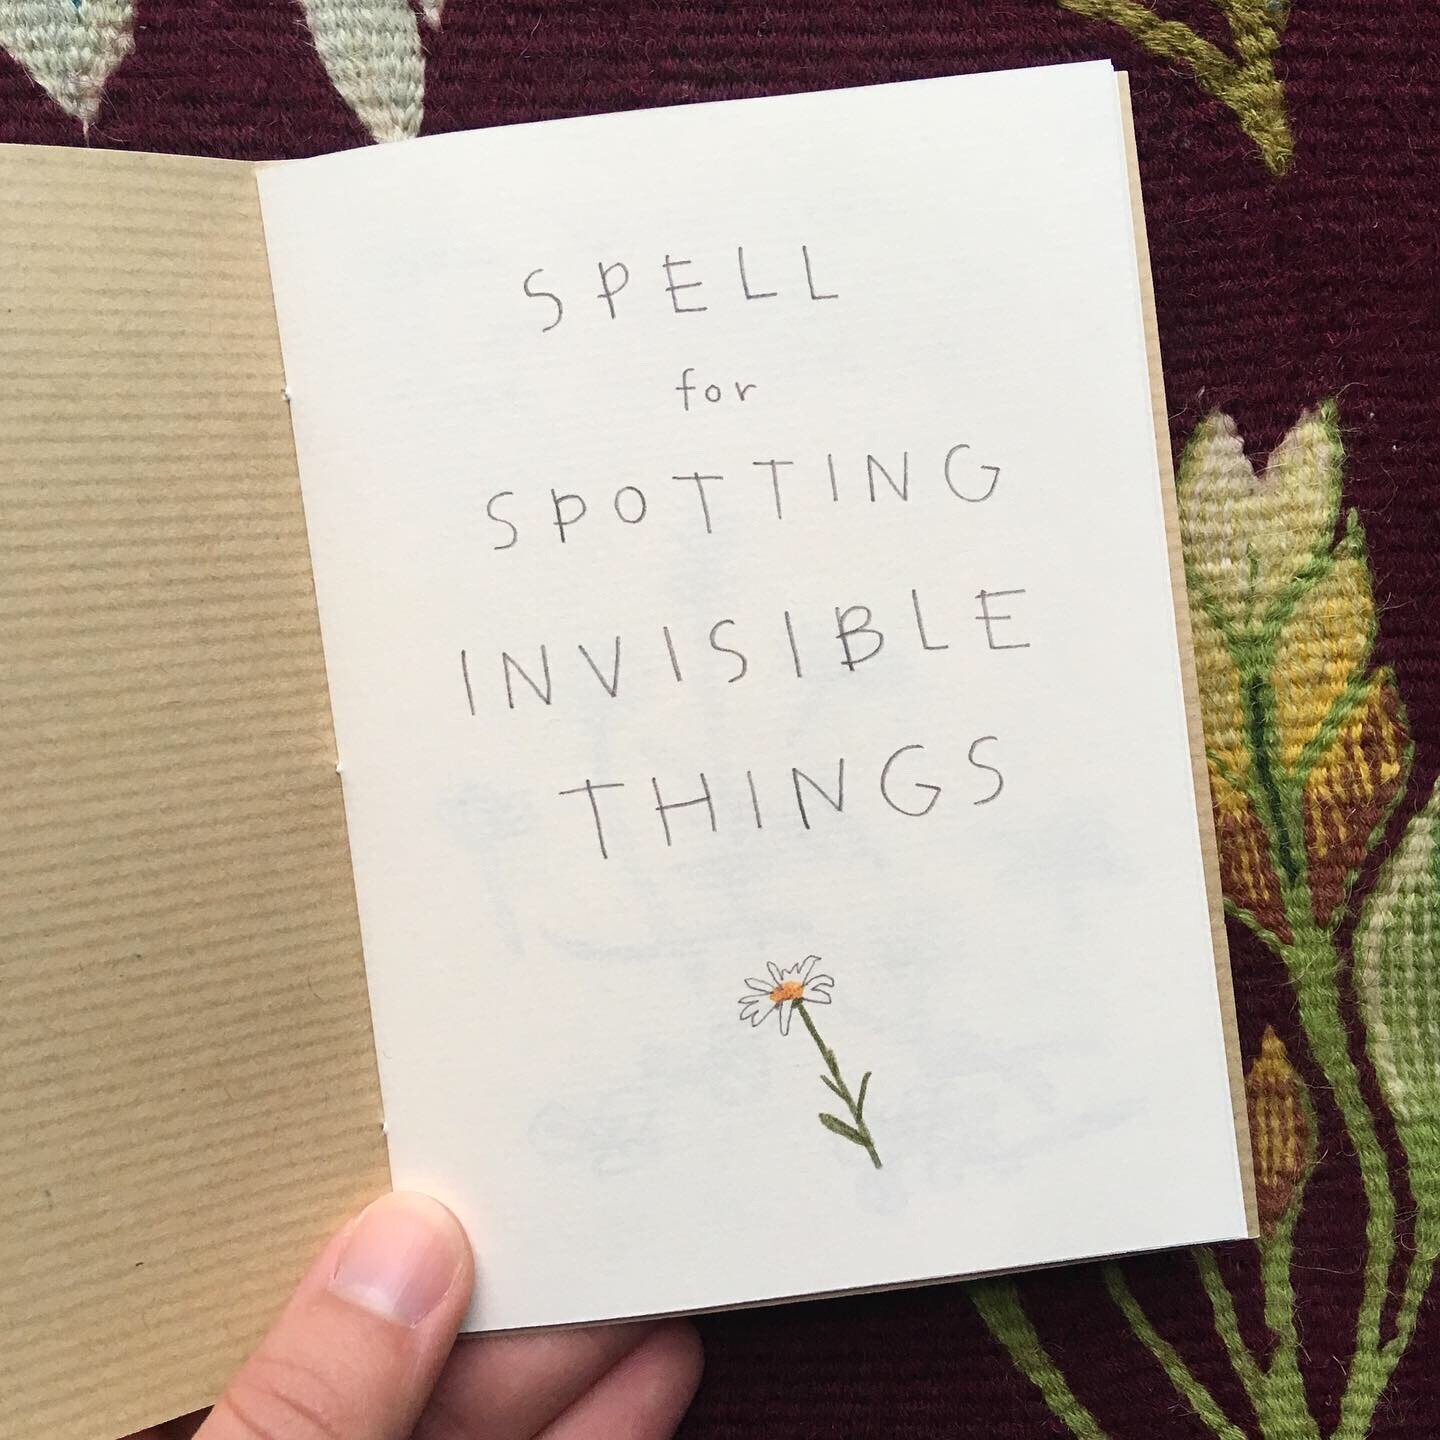 SPELL
for
SPOTTING
INVISIBLE
THINGS